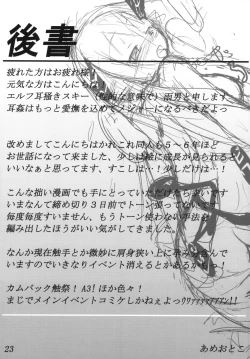 後書
疲れた方はお疲れ様！
元気な方はこんにちは！
エルフ耳掻きスキー（動的な意味で）雨男と申します
耳姦はもっと愛撫を込めてメジャーになるべきだよっ
改めましてこんにちはかれこれ同人も５～６年ほど
お世話になって来ました、少しは絵に成長が見られると
いいなぁと思ってます、すこしは…！少しだけは…！
こんな拙い漫画でも手にとっていただけたら幸いです
いまなんて締め切り３日前でトーン張ってないです
毎度毎度すいません、もうトーン使わない手法を
編み出したほうがいい気がしてきた
なんか現在触手とか微妙に肩身狭い上に
いますのでいきなりイベント消えるとかあるかもっ！
カムバック触祭！A3！ほか色々！
まじでメインイベントコミケしかねぇよっ
23
あめおとこ